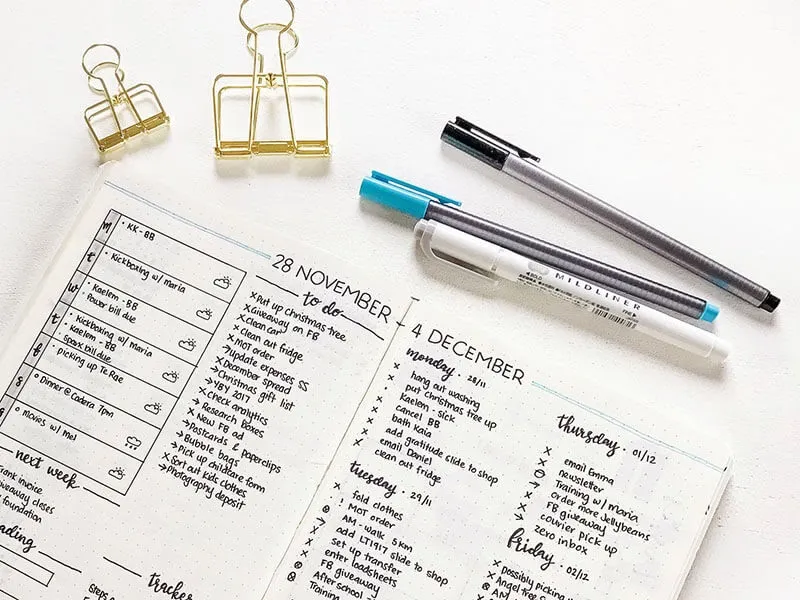 28 NOVEMBER - 4 DECEMBER
m
• KK - BB
t
• Kickboxing w/ Maria
w
• Kaelem - BB
• Power bill due
t
• Kickboxing w/ Maria
• Kaelem - BB
• Spark bill due
f
• picking up Te Rae
s
○ Dinner @ Cadera 7pm
s
○ Movies w/ Mel
next week
invoice
giveaway closes
foundation
to do
× Put up christmas tree
× Giveaway on FB
× clean car!
× clean out fridge
× MOT order
→ Update expenses SS
× December spread
→ Christmas gift list
→ YBY 2017
× Check analytics
→ Research boxes
× New FB ad
→ Postcards & paperclips
→ Bubble bags
× Pick up childcare form
× Sort out kids clothes
→ Photography deposit
tracker
monday • 28/11
× hang out washing
× put christmas tree up
× Kaelem - sick
× cancel BB
× bath Kaia
× add gratitude slide to shop
× email Daniel
× clean out fridge
tuesday • 29/11
× fold clothes
! MOT order
AM - walk 5km
add LT1917 slide to shop
× set up transfer
× enter loadsheets
FB giveaway
After school
Training
thursday • 01/12
× email Emma
× newsletter
Training w/ maria
→ order more Jellybeans
× FB giveaway
→ courier pick up
× zero inbox
friday • 02/12
× possibly picking
× Angel tree
AM
MILDLINER